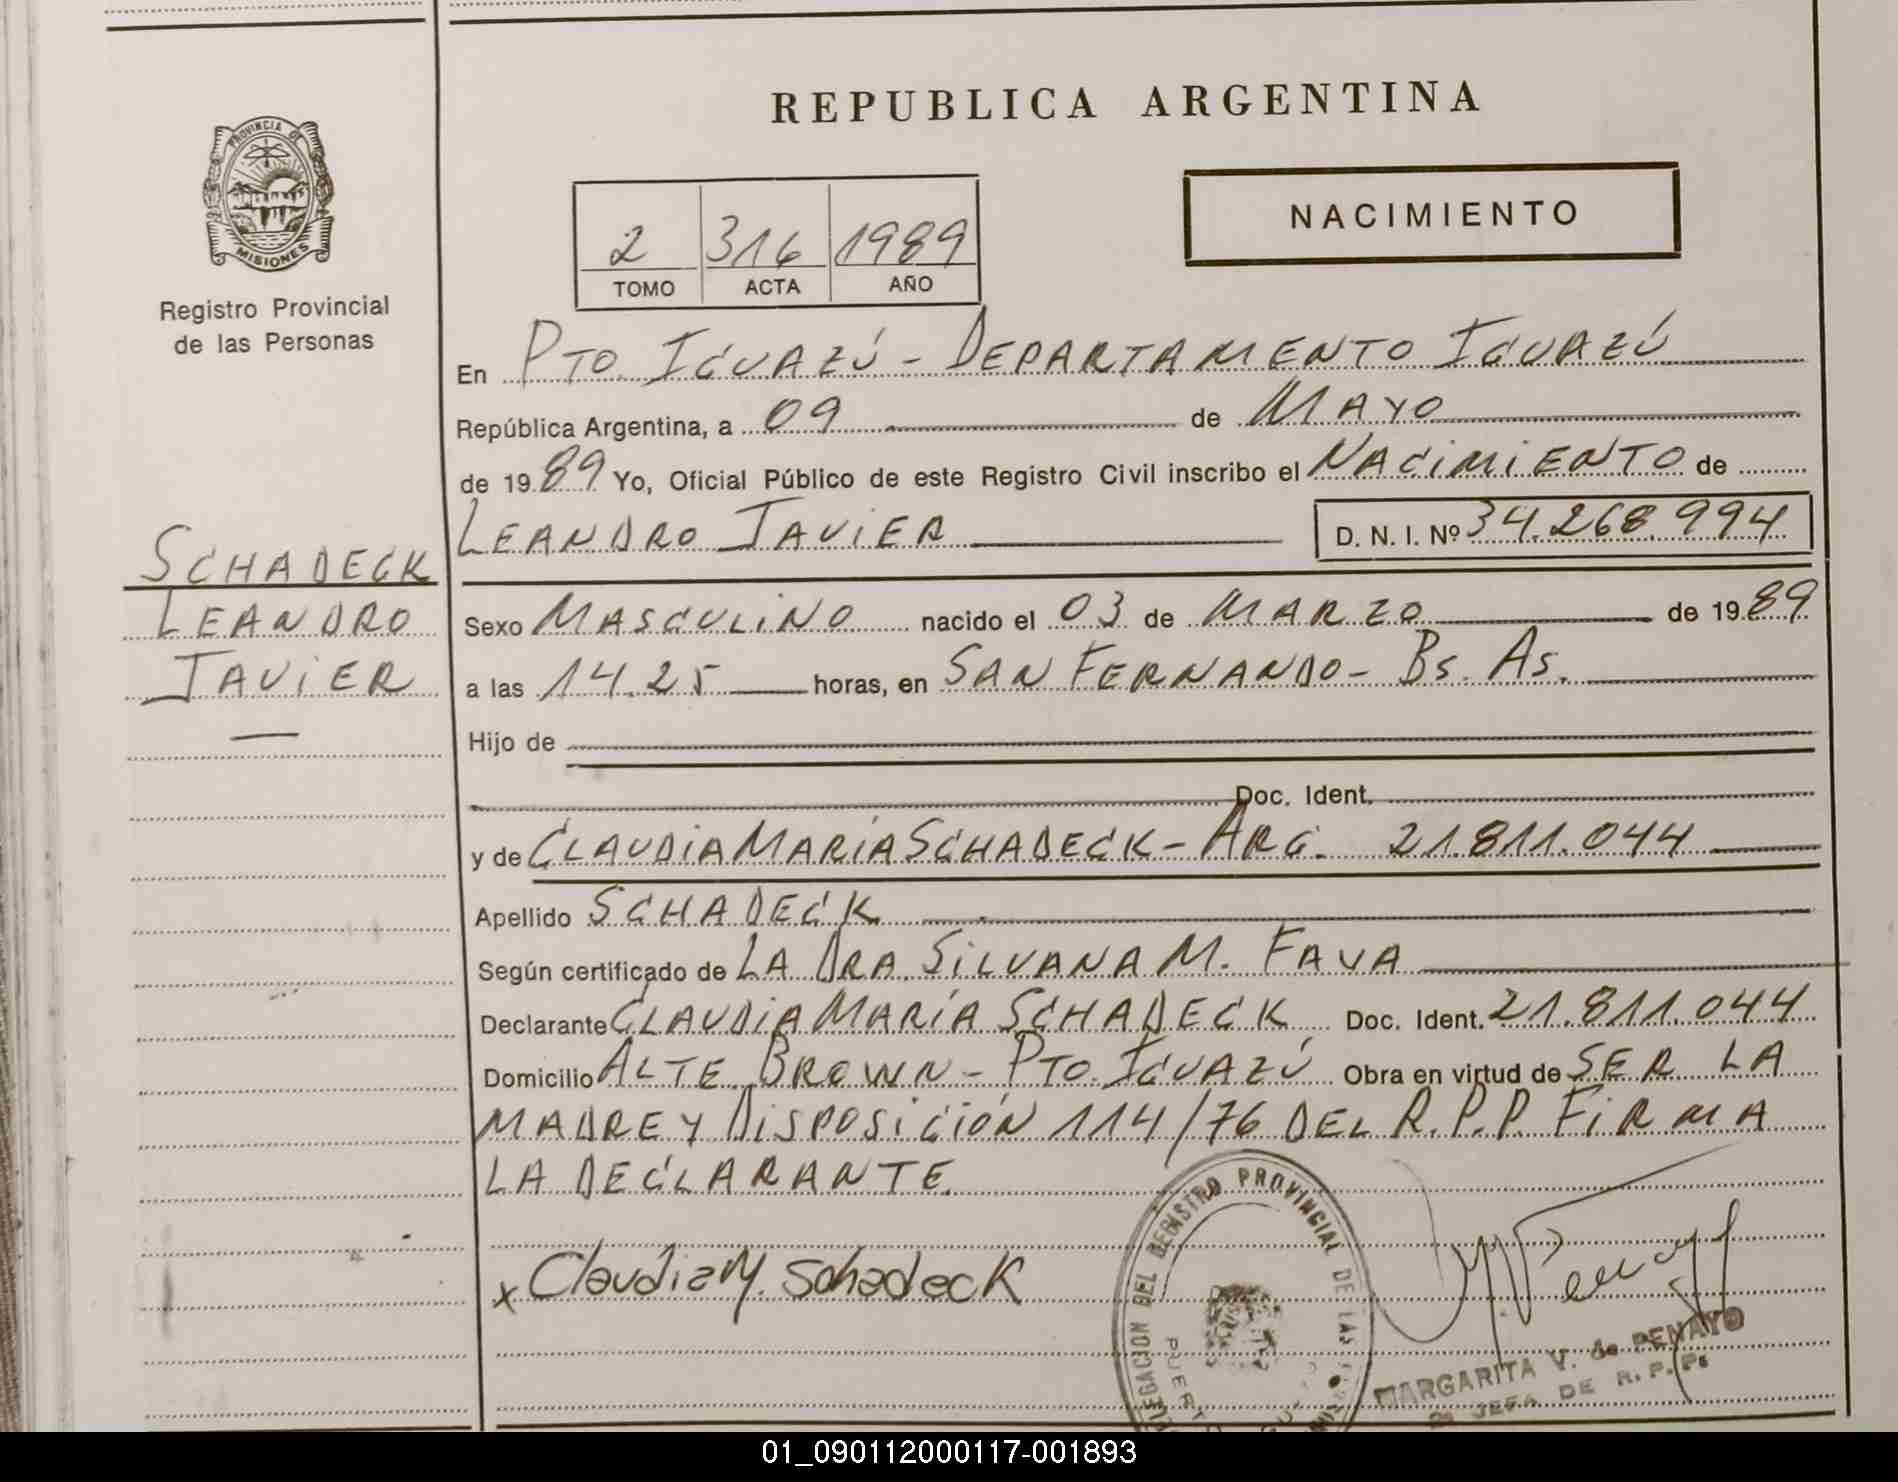 REPUBLICA ARGENTINA
PROVINCIA DE
MISIONES
Registro Provincial
de las Personas
NACIMIENTO
2 316 1989
TOMO ACTA AÑO
En PTO. IGUAZÚ - DEPARTAMENTO IGUAZÚ
República Argentina, a 09 de MAYO
de 1989 Yo, Oficial Público de este Registro Civil inscribo el NACIMIENTO de
LEANDRO JAVIER D. N. I. Nº 34.268.994
SCHADECK
LEANDRO
JAVIER
Sexo MASCULINO nacido el 03 de MARZO de 1989
a las 14.25 horas, en SAN FERNANDO - Bs. As.
Hijo de
Doc. Ident.
y de CLAUDIA MARÍA SCHADECK - ARG. 21.811.044
Apellido SCHADECK
Según certificado de LA DRA SILVANA M. FAVA
Declarante CLAUDIA MARÍA SCHADECK Doc. Ident. 21.811.044
Domicilio ALTE BROWN - PTO. IGUAZÚ Obra en virtud de SER LA
MADRE Y DISPOSICIÓN 114/76 DEL R.P.P. FIRMA
LA DECLARANTE.
x Claudia M. Schadeck
DELEGACION DEL REGISTRO PROVINCIAL DE LAS
MARGARITA V. de PENAYO
JEFA DE R.P.P.
01_090112000117-001893